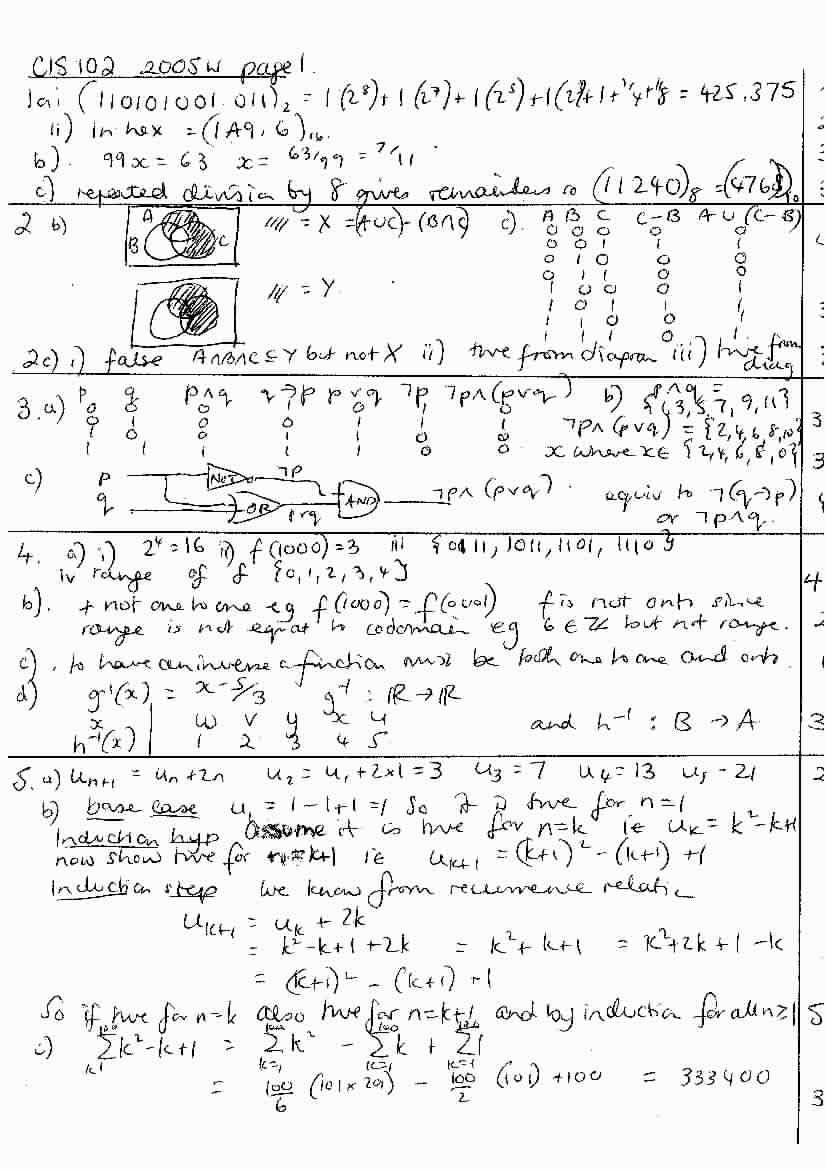 CIS 102 2005W page 1.
1ai (110101001.011)₂ = 1(2⁸) + 1(2⁷) + 1(2⁵) + 1(2³) + 1 + ¼ + ⅛ = 425.375
ii) in hex = (1A9.6)₁₆.
b). 99x = 63 x = 63/99 = 7/11
c) repeated division by 8 gives remainders so (11240)₈ = (4768)₁₀
2 b) A B C //// = X = (A∪C) - (B∩C) c). A B C C-B A∪(C-B)
0 0 0 0 0
0 0 1 1 1
0 1 0 0 0
0 1 1 0 0
1 0 0 0 1
1 0 1 1 1
1 1 0 0 1
1 1 1
/// = Y.
2c) i) false A∩B∩C ⊆ Y but not X ii) true from diagram iii) true from diag
3.a) p q p∧q q→p p∨q ¬p ¬p∧(p∨q) b) p∧q =
0 0 0 1 0 1 0 {1,3,5,7,9,11}
0 1 0 0 1 1 1 ¬p∧(p∨q) = {2,4,6,8,10}
1 0 0 1 1 0 0
1 1 1 1 1 0 0 x where x∈ {2,4,6,8,10}
c) p NOT ¬p
q OR p∨q AND ¬p∧(p∨q). equiv to ¬(q→p)
or ¬p∧q.
4. a) i) 2⁴=16 ii) f(1000)=3 iii {0111, 1011, 1101, 1110}
iv range of f {0,1,2,3,4}
b). f not one to one eg f(1000) = f(0001) f is not onto since
range is not equal to codomain eg 6 ∈ ℤ but not range.
c). to have an inverse a function must be both one to one and onto.
d) g⁻¹(x) = x-5/3 g⁻¹ : ℝ → ℝ
x w v y x u and h⁻¹ : B → A
h⁻¹(x) 1 2 3 4 5
5. a) uₙ₊₁ = uₙ + 2n u₂ = u₁ + 2×1 = 3 u₃ = 7 u₄ = 13 u₅ - 21
b) base case u₁ = 1-1+1 = 1 so it is true for n=1
Induction hyp Assume it is true for n=k ie uₖ = k²-k+1
now show true for n=k+1 ie uₖ₊₁ = (k+1)² - (k+1) + 1
Induction step we know from recurrence relatio
uₖ₊₁ = uₖ + 2k
= k²-k+1+2k = k²+k+1 = k²+2k+1-k
= (k+1)² - (k+1) + 1
So if true for n=k also true for n=k+1 and by induction for all n≥1 5
c) ∑k=1 100 k²-k+1 = ∑k=1 100 k² - ∑k=1 100 k + ∑k=1 100 1
= 100/6 (101×201) - 100/2 (101) + 100 = 333400 3